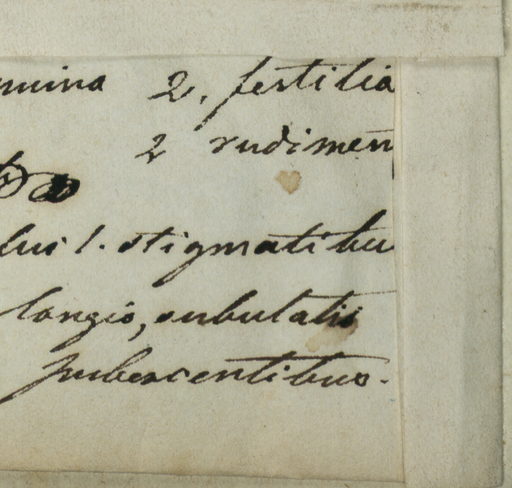 mina 2. fertilia
2 rudimen
lui 1. stigmatibu
longis, subulatis
pubescentibus.